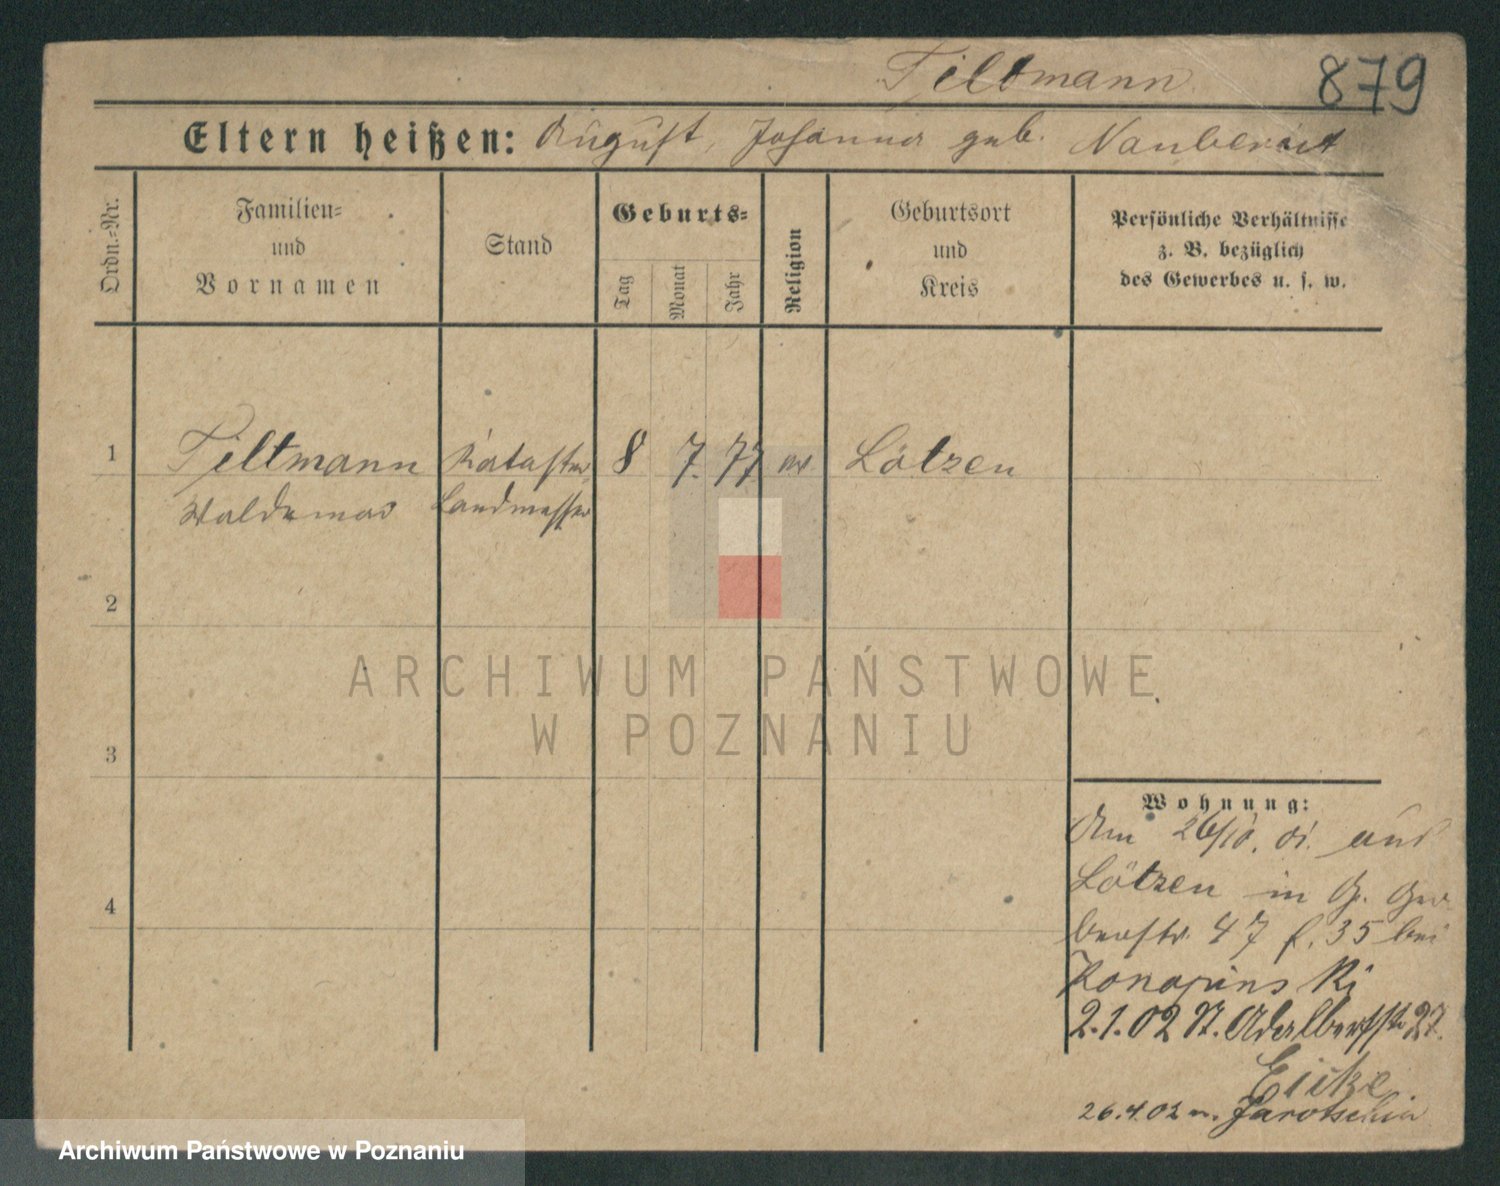 Tiltmann
879
Eltern heißen: August, Johanna geb. Naubereit
Ordn.-Nr.
Familien-
und
Vornamen
Stand
Geburts-
Tag
Monat
Jahr
Religion
Geburtsort
und
Kreis
Persönliche Verhältnisse
z. B. bezüglich
des Gewerbes u. s. w.
1
Tiltmann Kataster 8 7. 77 ev Lötzen
Waldemar Landmesser
2
ARCHIWUM PAŃSTWOWE
W POZNANIU
3
4
Wohnung:
Am 26/10. 01. aus
Lötzen in G. Ger
berstr. 47 f. 35 bei
2.1.02 St. Adalbertstr 27.
26.4.02 n. Jarotschin
Archiwum Państwowe w Poznaniu